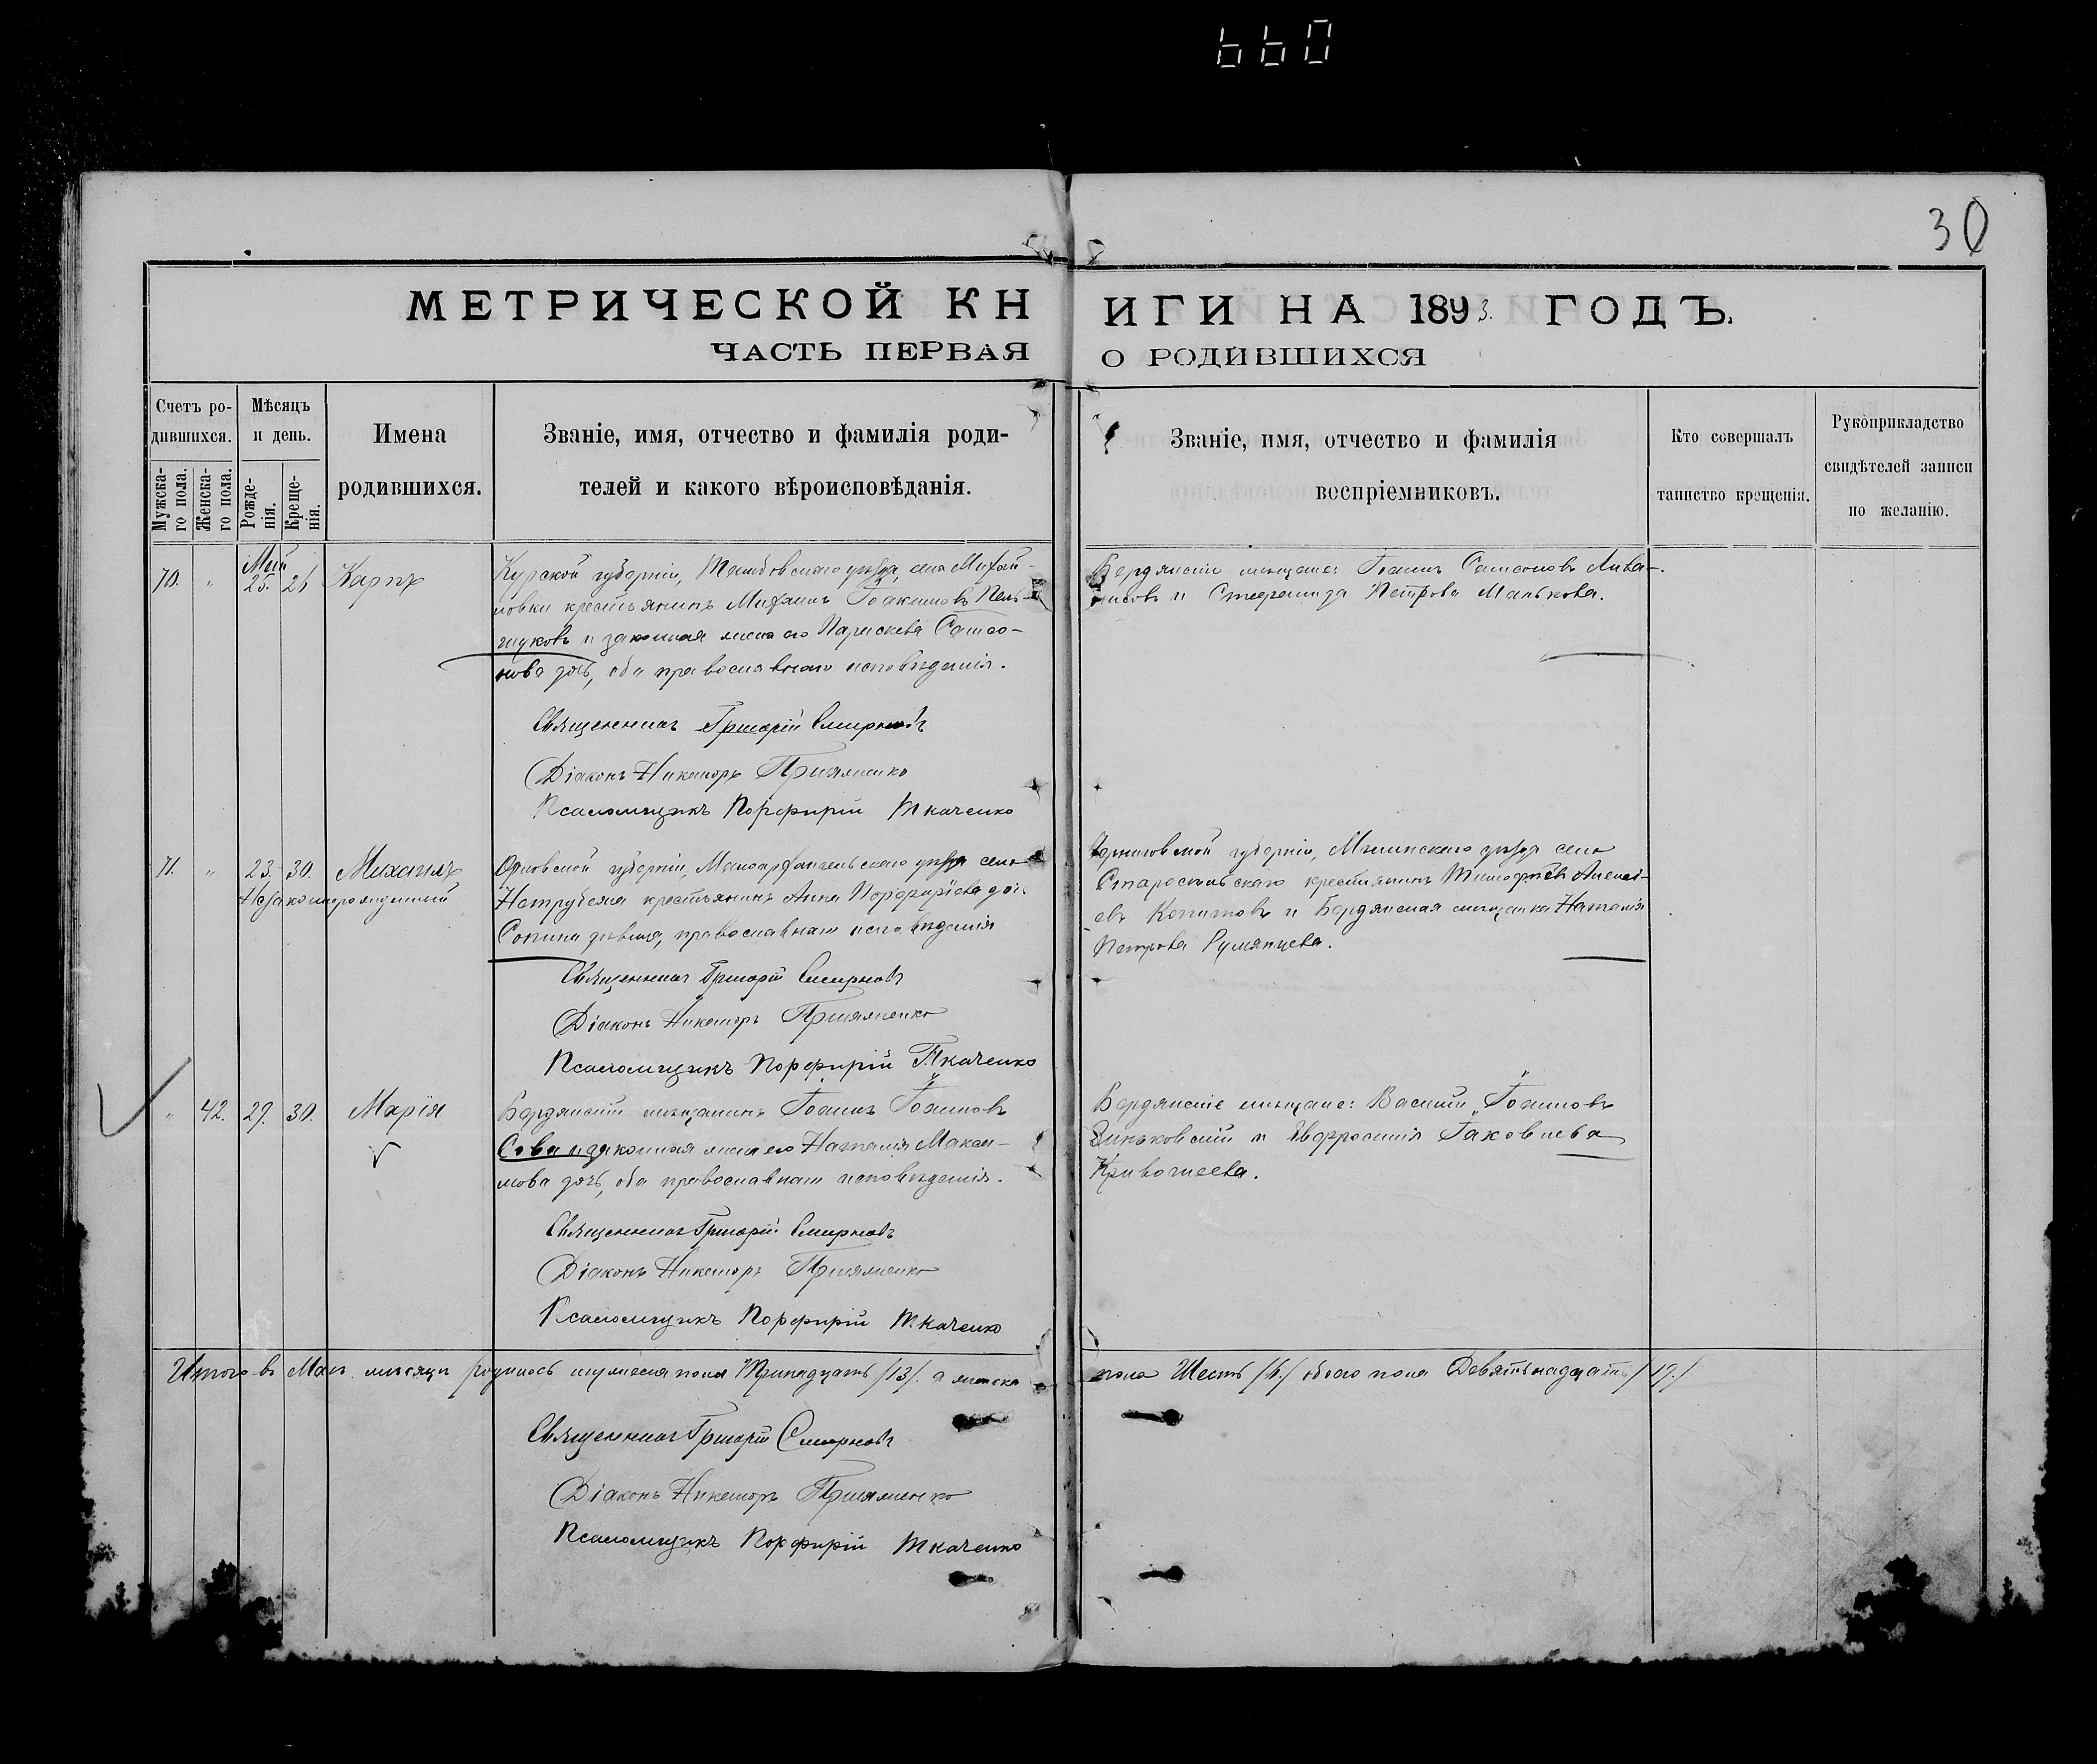 660
30
МЕТРИЧЕСКОЙ КНИГИ НА 1893. ГОДЪ.
ЧАСТЬ ПЕРВАЯ О РОДИВШИХСЯ
Счетъ ро-
дившихся.
Мужска-
го пола.
Женска-
го пола.
Мѣсяцъ
и день.
Рожде-
нія.
Креще-
нія.
Имена
родившихся.
Званіе, имя, отчество и фамилія роди-
телей и какого вѣроисповѣданія.
Званіе, имя, отчество и фамилія
воспріемниковъ.
Кто совершалъ
таинство крещенія.
Рукоприкладство
свидѣтелей записи
по желанію.
Май
70. " 25. 26 Карпъ
Курской губерніи, уѣзда, села Михай-
ловки крестьянинъ Михаилъ Іоакимовъ
и законная жена его Параскева Самсо-
нова дочь, оба православнаго исповѣданія.
Священникъ Григорій Смирновъ
Діаконъ Никаноръ
Псаломщикъ Порфирій Ткаченко
Бердянскіе мѣщане: Іоаннъ Самсоновъ
и Стефанида Петрова Малькова.
71. " 23. 30. Михаилъ
Незаконнорожденный
Орловской губерніи, Малоархангельскаго уѣзда села
крестьянка Анна Порфиріева дочь
Сопина девица, православнаго исповѣданія
Священникъ Григорій Смирновъ
Діаконъ Никаноръ
Псаломщикъ Порфирій Ткаченко
Черниговской губерніи, Мглинскаго уѣзда села
крестьянинъ Тимофей Алексѣ-
евъ и Бердянская мѣщанка Наталія
Петрова Румянцева.
" 42. 29. 30. Марія
Бердянскій мѣщанинъ Іоаннъ Іоанновъ
Сова и законная жена его Наталія Макси-
мова дочь, оба православнаго исповѣданія.
Священникъ Григорій Смирновъ
Діаконъ Никаноръ
Псаломщикъ Порфирій Ткаченко
Бердянскіе мѣщане: Василій Іоанновъ
Зиньковскій и Евфросинія Іаковлева
Кривошеева.
Итого въ Маѣ мѣсяцѣ родилось мужеска пола Тринадцать /13/. а женска
пола Шесть /6./ обоего пола Девятьнадцать /19./
Священникъ Григорій Смирновъ
Діаконъ Никаноръ
Псаломщикъ Порфирій Ткаченко